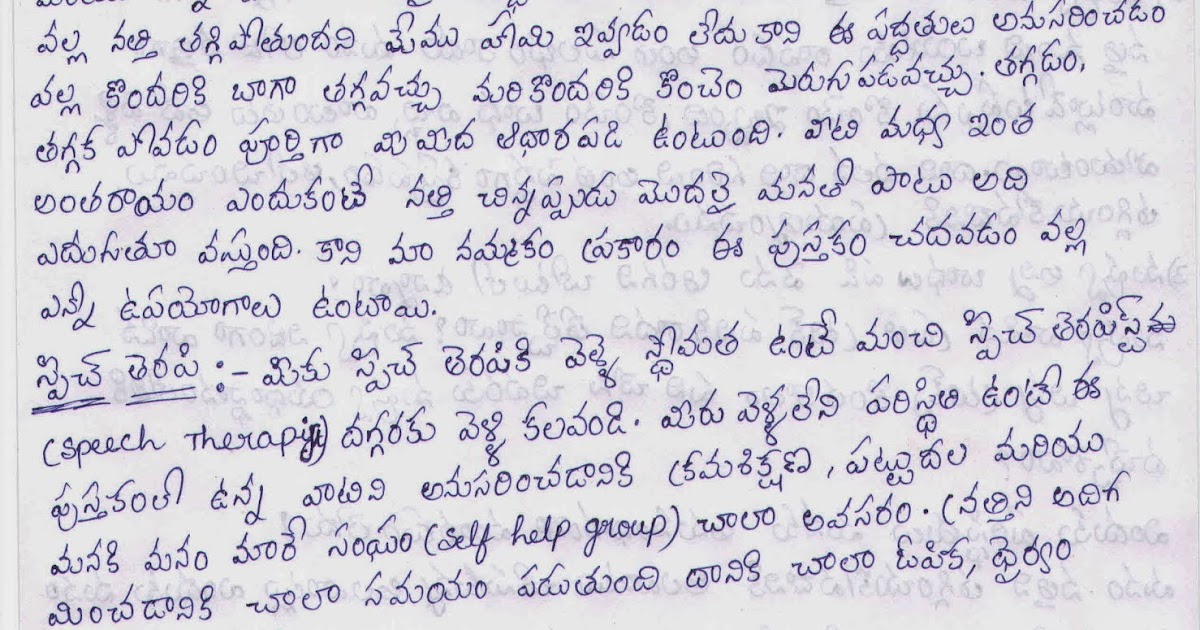 వల్ల నత్తి తగ్గిపోతుందని మేము హామి ఇవ్వడం లేదు కాని ఈ పద్ధతులు అనుసరించడం
వల్ల కొందరికి బాగా తగ్గవచ్చు మరికొందరికి కొంచెం మెరుగుపడవచ్చు. తగ్గడం,
తగ్గక పోవడం పూర్తిగా మీమీద ఆధారపడి ఉంటుంది. వాటి మధ్య ఇంత
అంతరాయం ఎందుకంటే నత్తి చిన్నప్పుడు మొదలై మనతో పాటు అది
ఎదుగుతూ వస్తుంది. కాని మా నమ్మకం ప్రకారం ఈ పుస్తకం చదవడం వల్ల
ఎన్నో ఉపయోగాలు ఉంటాయి.
స్పీచ్ తెరపి :- మీకు స్పీచ్ తెరపికి వెళ్ళే స్థోమత ఉంటే మంచి స్పీచ్ తెరపిస్ట్‌ను
(speech Therapist) దగ్గరకు వెళ్ళి కలవండి. మీరు వెళ్ళలేని పరిస్థితి ఉంటే ఈ
పుస్తకంలో ఉన్న వాటిని అనుసరించడానికి క్రమశిక్షణ, పట్టుదల మరియు
మనకి మనం మారే సంఘం (self help group) చాలా అవసరం. (నత్తిని అదిగ
మించడానికి చాలా సమయం పడుతుంది దానికి చాలా ఓపిక, ధైర్యం